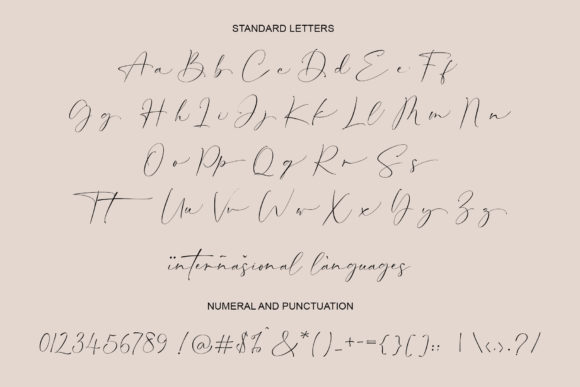 STANDARD LETTERS
Aa Bb Cc Dd Ee Ff
Gg Hh Ii Jj Kk Ll Mm Nn
Oo Pp Qq Rr Ss
Tt Uu Vv Ww Xx Yy Zz
ïnterñašional lànguages
NUMERAL AND PUNCTUATION
0123456789 ! @ # $ % & * ( ) _ + - = { } [ ] : ; | \ < , > . ? /